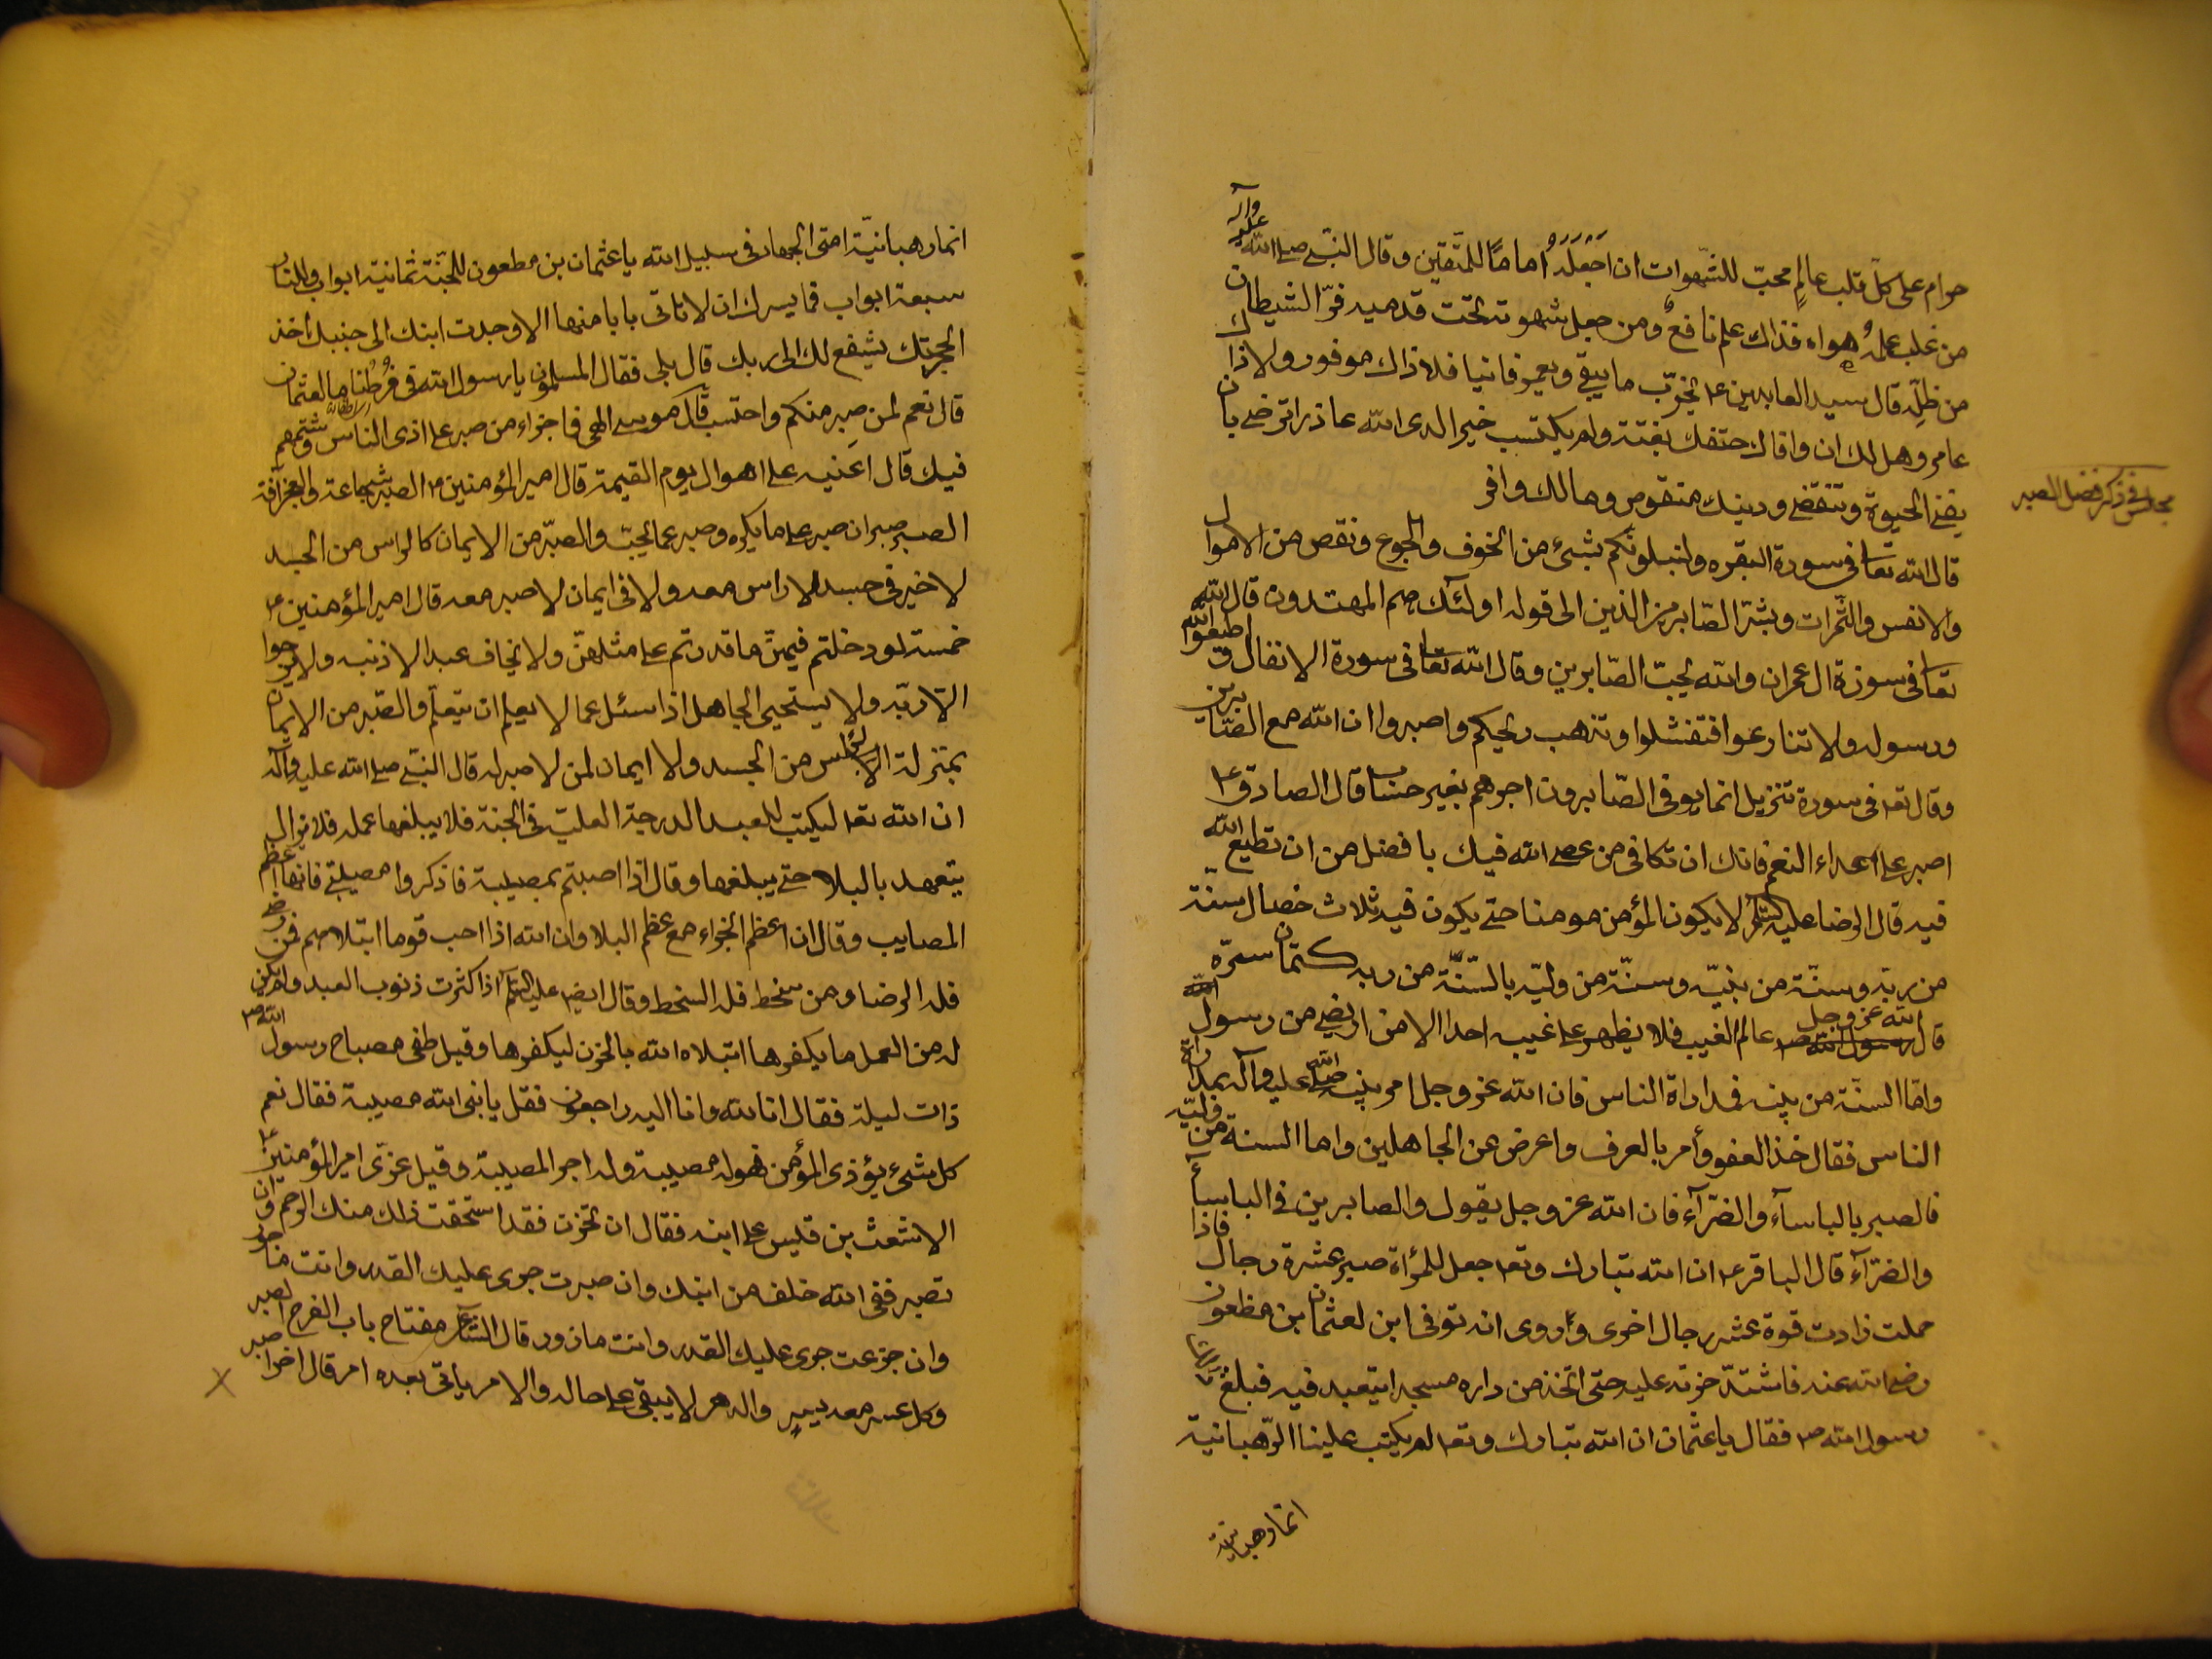 حرام على كلّ قلب عالمٍ محبّ للشّهوات ان اجعله اماماً للمتّقين وقال النبّي صلى الله عليه وآله
من غلب علمهُ هواه فذاك علم نافعٌ ومن جعل شهوته تحت قدميه فرّ الشيطان
من ظلّه قال سيد العابدين ع تخرّب ما يبقى وتعمر فانيا فلا ذاك موفور ولا ذاك
عامر وهل لك ان وافاك حتفك بغتة ولم يكتسب خيرا لدى الله عاذر اترضى بان
يفنى الحيوة وتنقضى ودينك منقوص ومالك وافر
مجلس فى ذكر فضل الصبر
قال الله تعا فى سورة البقره ولنبلونكم بشىء من الخوف والجوع ونقص من الاموال
والانفس والثّمرات وبشّر الصّابرين الذين الى قوله اولئك هم المهتدون قال الله
تعا فى سورة ال عمران والله يحبّ الصّابرين وقال الله تعا فى سورة الانفال واطيعوا الله
ورسوله ولا تنازعوا فتفشلوا وتذهب ريحكم واصبروا ان الله مع الصّابرين
وقال تعا فى سورة تنزيل انما يوفى الصّابرون اجرهم بغير حساب قال الصادق ع
اصبر على اعداء النعم فانك ان تكافى من عصى الله فيك بافضل من ان تطيع الله
فيه قال الرضا عليه السّلم لا يكون المؤمن مومنا حتى يكون فيه ثلاث خصال سنّة
من ربّه وسنّة من نبيّه وسنّة من وليّه بالسّنّة من ربه كتمان سرّه
قال رسول الله ص الله عز وجل عالم الغيب فلا يظهر على غيبه احدا الا من ارتضى من رسول
وامّا السنّة من نبيه فمداراة الناس فان الله عز وجل امر نبيه صلى الله عليه وآله بمداراة
الناس فقال خذ العفو وأمر بالعرف واعرض عن الجاهلين واما السنة من وليّه
فالصبر بالباساء والضرّآء فان الله عز وجل يقول والصابرين فى الباساء
والضرّآء قال الباقر ع ان الله تبارك وتعا جعل للمرأة صبر عشرة رجال فاذا
حملت زادت قوة عشر رجال اخرى وروى انه توفى ابن لعثمان بن مظعون
رضى الله عنه فاشتدّ حزنه عليه حتى اتخذ من داره مسجدا يتعبد فيه فبلغ ذلك
رسول الله ص فقال يا عثمان ان الله تبارك وتعا لم يكتب علينا الرّهبانية
انما رهبانية
انما رهبانيّة امتى الجهاد فى سبيل الله يا عثمان بن مطعون للجنّة ثمانية ابواب وللنار
سبعة ابواب فما يسرك ان لا تاتى بابا منها الا وجدت ابنك الى جنبك اخذ
الحجزتك يشفع لك الى ربك قال بلى فقال المسلمون يا رسول الله فى فرُطنا ما لعثمان
قال نعم لمن صبر منكم واحتسب قال موسى الهى فما جزاء من صبر على اذى الناس وشتمهم
فيك قال اعنيه على اهوال يوم القيمة قال امير المؤمنين ع الصبر شجاعة والعجز آفة
الصبر صبران صبر على ما يكره وصبر عما يحبّ والصبّر من الايمان كالراس من الجسد
لا خير فى جسد لا راس معه ولا فى ايمان لا صبر معه قال امير المؤمنين ع
خمسة لو دخلتم فيهنّ ما قدرتم على مثلهنّ ولا يخاف عبد الا ذنبه ولا يرجوا
الّا ربّه ولا يستحيى الجاهل اذا سئل عما لا يعلم ان يتعلّم والصّبر من الايمان
بمنزلة الراس من الجسد ولا ايمان لمن لا صبر له قال النبّى صلى الله عليه وآله
ان الله تعا ليكتب للعبد الدرجة العليّ فى الجنة فلا يبلغها عمله فلا يزال
يتعهد بالبلا حتى يبلغها وقال اذا اصبتم بمصيبة فاذكروا مصيبتى فانها اعظم
المصايب وقال ان اعظم الجزاء مع عظم البلا وان الله اذا احب قوما ابتلاهم فمن رضى
فله الرضا ومن سخط فله السخط وقال ايضا عليه السّلم اذا كثرت ذنوب العبد ولم يكن
له من العمل ما يكفرها ابتلاه الله بالحزن ليكفرها وقيل طفى مصباح رسول الله ص
ذات ليلة فقال انا لله وانا اليه راجعون فقل يا نبى الله مصيبة فقال نعم
كل شىء يؤذى المؤمن فهو له مصيبة وله اجر المصيبة وقيل عزّى امير المؤمنين ع
الاشعث بن قليس على ابنه فقال ان تحزن فقد استحقت ذلك منك الرحم وان
تصبر ففى الله خلف من ابنك وان صبرت جرى عليك القدر وانت ماجور
وان جزعت جرى عليك القدر وانت مازور قال الشّاعر مفتاح باب الفرج الصبر
وكل عسر معه يسير والدهر لا يبقى على حاله والامر ياتى بعده امر قال اخر اصبر